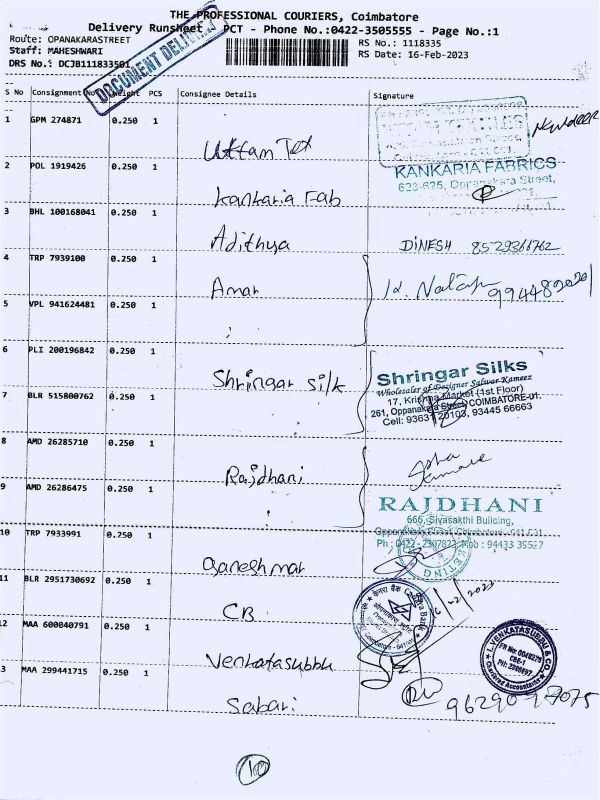 THE PROFESSIONAL COURIERS, Coimbatore
Delivery Runsheet - PCT - Phone No.:0422-3505555 - Page No.:1
Route: OPANAKARASTREET
RS No.: 1118335
Staff: MAHESHWARI
RS Date: 16-Feb-2023
DRS No.: DCJB111833501
DOCUMENT DELIVERY
S No Consignment No Weight PCS Consignee Details Signature
1 GPM 274871 0.250 1
Uttam Tex
2 POL 1919426 0.250 1
KANKARIA FABRICS
623-625, Oppanakara Street,
Kankaria Fab
3 BHL 100168041 0.250 1
Adithya DINESH 8529366762
4 TRP 7939100 0.250 1
Amar 9944820201
5 VPL 941624481 0.250 1
6 PLI 200196842 0.250 1
Shringar Silks
Wholesaler of Designer Salwar Kameez
17, Krishna Market (1st Floor)
261, Oppanakara Street COIMBATORE-01.
Cell: 93631 20103, 93445 66663
Shringar silk
7 BLR 515800762 0.250 1
8 AMD 26285710 0.250 1
Rajdhani
9 AMD 26286475 0.250 1
RAJDHANI
666, Sivasakthi Building,
10 TRP 7933991 0.250 1
Ganeshmar
11 BLR 2951730692 0.250 1
CB
12 MAA 600040791 0.250 1
Venkatasubbu
13 MAA 299441715 0.250 1
Sabari
L.VENKATASUBBU & CO.
CBE-1
Chartered Accountants
10